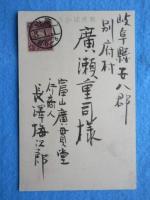 郵便はがき
岐阜縣安八郡
別府村
廣瀬重司様
富山廣貫堂
行商人
長澤梅次郎